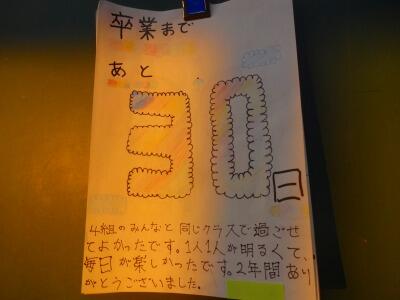 卒業まで
あと
30日
4組のみんなと同じクラスで過ごせ
てよかったです。1人1人が明るくて、
毎日が楽しかったです。2年間あり
がとうございました。